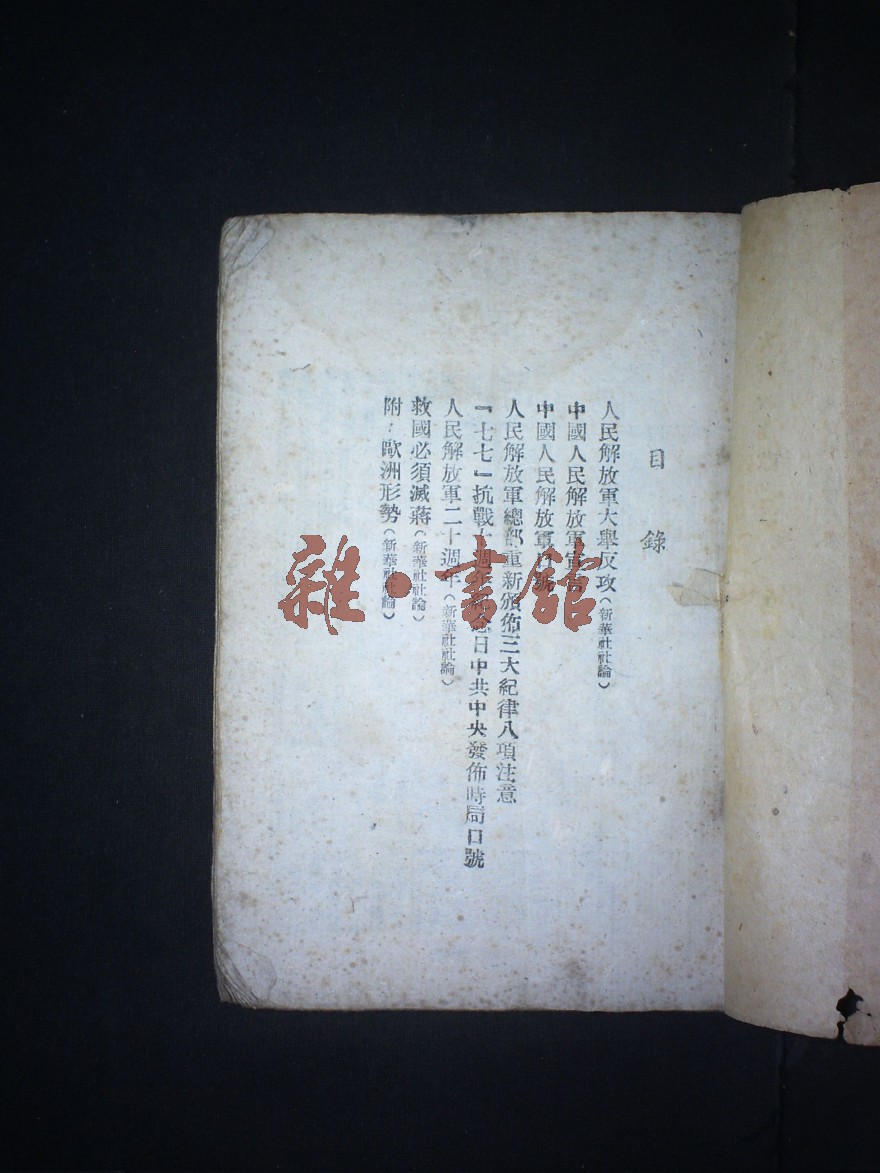 目錄
人民解放軍大舉反攻（新華社社論）
中國人民解放軍宣言
中國人民解放軍口號
人民解放軍總部重新頒佈三大紀律八項注意
『七七』抗戰十週年紀念日中共中央發佈時局口號
人民解放軍二十週年（新華社社論）
救國必須滅蔣（新華社社論）
附：歐洲形勢（新華社社論）
雜·書館